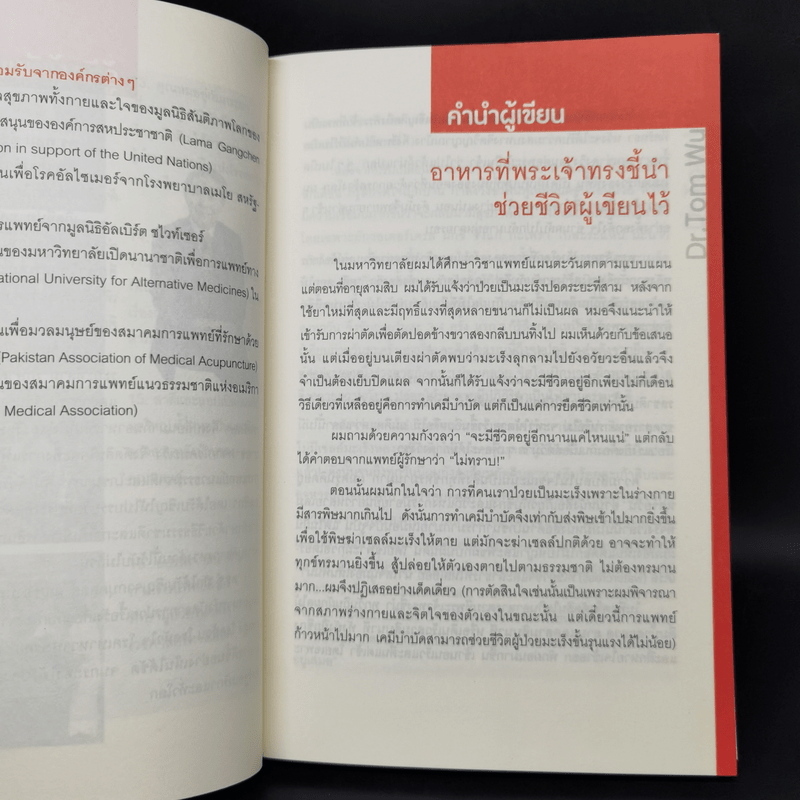 อมรับจากองค์กรต่างๆ
สุขภาพทั้งกายและใจของมูลนิธิสันติภาพโลกของ
สนุนขององค์การสหประชาชาติ (Lama Gangchen
on in support of the United Nations)
นเพื่อโรคอัลไซเมอร์จากโรงพยาบาลเมโย สหรัฐ-
รแพทย์จากมูลนิธิอัลเบิร์ต ชไวท์เซอร์
นของมหาวิทยาลัยเปิดนานาชาติเพื่อการแพทย์ทาง
ational University for Alternative Medicines) ใน
นเพื่อมวลมนุษย์ของสมาคมการแพทย์ที่รักษาด้วย
(Pakistan Association of Medical Acupuncture)
นของสมาคมการแพทย์แนวธรรมชาติแห่งอเมริกา
Medical Association)
คำนำผู้เขียน
Dr.Tom Wu
อาหารที่พระเจ้าทรงชี้นำ
ช่วยชีวิตผู้เขียนไว้
ในมหาวิทยาลัยผมได้ศึกษาวิชาแพทย์แผนตะวันตกตามแบบแผน
แต่ตอนที่อายุสามสิบ ผมได้รับแจ้งว่าป่วยเป็นมะเร็งปอดระยะที่สาม หลังจาก
ใช้ยาใหม่ที่สุดและมีฤทธิ์แรงที่สุดหลายขนานก็ไม่เป็นผล หมอจึงแนะนำให้
เข้ารับการผ่าตัดเพื่อตัดปอดข้างขวาสองกลีบบนทิ้งไป ผมเห็นด้วยกับข้อเสนอ
นั้น แต่เมื่ออยู่บนเตียงผ่าตัดพบว่ามะเร็งลุกลามไปยังอวัยวะอื่นแล้วจึง
จำเป็นต้องเย็บปิดแผล จากนั้นก็ได้รับแจ้งว่าจะมีชีวิตอยู่อีกเพียงไม่กี่เดือน
วิธีเดียวที่เหลืออยู่คือการทำเคมีบำบัด แต่ก็เป็นแค่การยืดชีวิตเท่านั้น
ผมถามด้วยความกังวลว่า “จะมีชีวิตอยู่อีกนานแค่ไหนแน่” แต่กลับ
ได้คำตอบจากแพทย์ผู้รักษาว่า “ไม่ทราบ!”
ตอนนั้นผมนึกในใจว่า การที่คนเราป่วยเป็นมะเร็งเพราะในร่างกาย
มีสารพิษมากเกินไป ดังนั้นการทำเคมีบำบัดจึงเท่ากับส่งพิษเข้าไปมากยิ่งขึ้น
เพื่อใช้พิษฆ่าเซลล์มะเร็งให้ตาย แต่มักจะฆ่าเซลล์ปกติด้วย อาจจะทำให้
ทุกข์ทรมานยิ่งขึ้น สู้ปล่อยให้ตัวเองตายไปตามธรรมชาติ ไม่ต้องทรมาน
มาก...ผมจึงปฏิเสธอย่างเด็ดเดี่ยว (การตัดสินใจเช่นนั้นเป็นเพราะผมพิจารณา
จากสภาพร่างกายและจิตใจของตัวเองในขณะนั้น แต่เดี๋ยวนี้การแพทย์
ก้าวหน้าไปมาก เคมีบำบัดสามารถช่วยชีวิตผู้ป่วยมะเร็งขั้นรุนแรงได้ไม่น้อย)